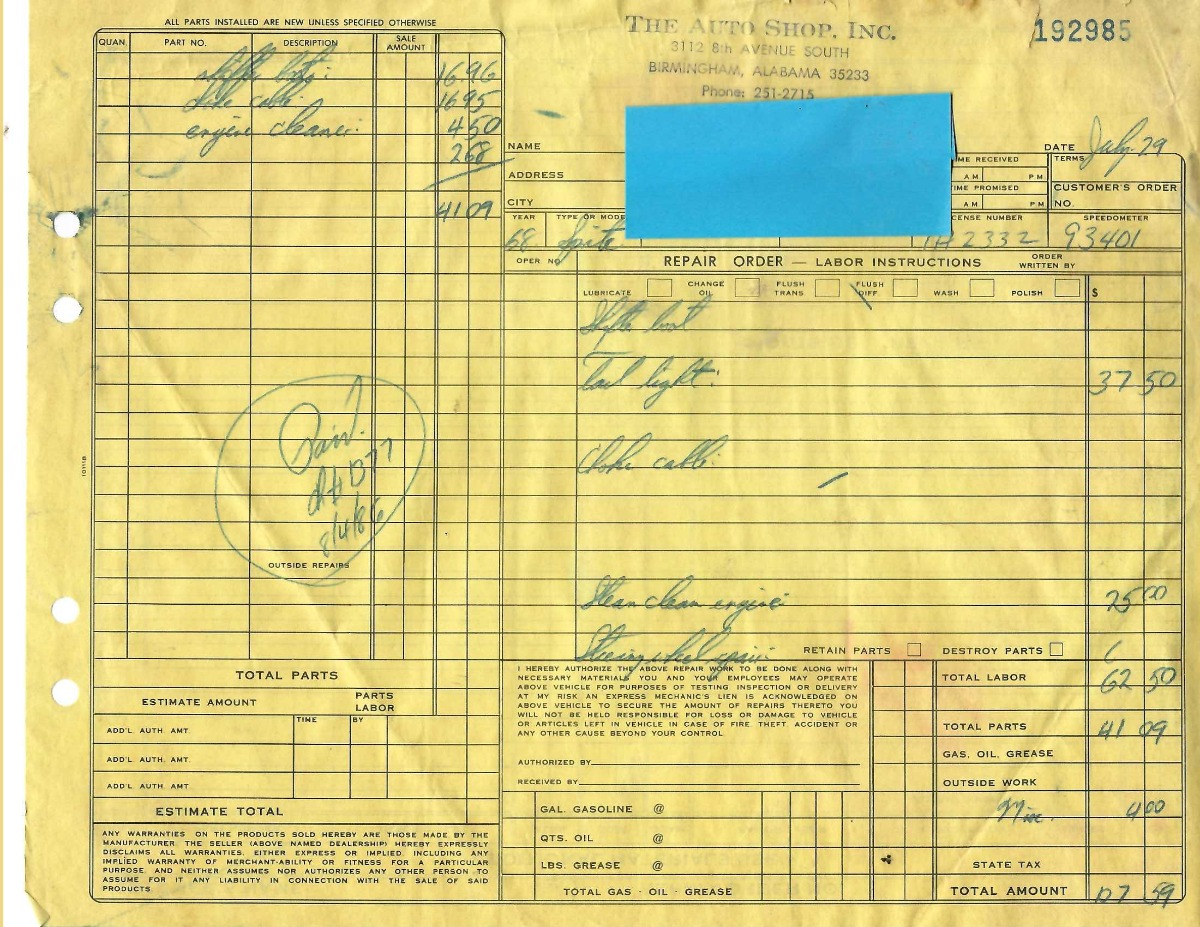 ALL PARTS INSTALLED ARE NEW UNLESS SPECIFIED OTHERWISE
QUAN. PART NO. DESCRIPTION SALE AMOUNT
shifter boot: 16.96
choke cable: 16 95
engine cleaner: 4 50
268
41 09
Paid.
8/4/86
OUTSIDE REPAIRS
TOTAL PARTS
ESTIMATE AMOUNT PARTS LABOR
TIME BY
ADD'L. AUTH. AMT.
ADD'L. AUTH. AMT.
ADD'L. AUTH. AMT.
ESTIMATE TOTAL
ANY WARRANTIES ON THE PRODUCTS SOLD HEREBY ARE THOSE MADE BY THE
MANUFACTURER. THE SELLER (ABOVE NAMED DEALERSHIP) HEREBY EXPRESSLY
DISCLAIMS ALL WARRANTIES, EITHER EXPRESS OR IMPLIED, INCLUDING ANY
IMPLIED WARRANTY OF MERCHANT-ABILITY OR FITNESS FOR A PARTICULAR
PURPOSE, AND NEITHER ASSUMES NOR AUTHORIZES ANY OTHER PERSON TO
ASSUME FOR IT ANY LIABILITY IN CONNECTION WITH THE SALE OF SAID
PRODUCTS.
THE AUTO SHOP, INC.
3112 8th AVENUE SOUTH
BIRMINGHAM, ALABAMA 35233
Phone: 251-2715
192985
NAME
DATE July 29
ADDRESS
ME RECEIVED TERMS
A M P M
CITY
IME PROMISED CUSTOMER'S ORDER NO.
A M P M
YEAR TYPE OR MODE CENSE NUMBER SPEEDOMETER
68 Sprite 2332 93401
OPER NO. REPAIR ORDER — LABOR INSTRUCTIONS ORDER WRITTEN BY
LUBRICATE CHANGE OIL FLUSH TRANS FLUSH DIFF WASH POLISH $
Shifter boot
Tail light: 37 50
Choke cable:
Steam clean engine 25 00
Steering wheel repair: RETAIN PARTS DESTROY PARTS
I HEREBY AUTHORIZE THE ABOVE REPAIR WORK TO BE DONE ALONG WITH
NECESSARY MATERIALS. YOU AND YOUR EMPLOYEES MAY OPERATE
ABOVE VEHICLE FOR PURPOSES OF TESTING INSPECTION OR DELIVERY
AT MY RISK. AN EXPRESS MECHANIC'S LIEN IS ACKNOWLEDGED ON
ABOVE VEHICLE TO SECURE THE AMOUNT OF REPAIRS THERETO. YOU
WILL NOT BE HELD RESPONSIBLE FOR LOSS OR DAMAGE TO VEHICLE
OR ARTICLES LEFT IN VEHICLE IN CASE OF FIRE, THEFT, ACCIDENT OR
ANY OTHER CAUSE BEYOND YOUR CONTROL.
AUTHORIZED BY
RECEIVED BY
TOTAL LABOR 62 50
TOTAL PARTS 41 09
GAS, OIL, GREASE
OUTSIDE WORK
GAL. GASOLINE @
QTS. OIL @
LBS. GREASE @
TOTAL GAS - OIL - GREASE
Misc. 4 00
STATE TAX
TOTAL AMOUNT 107 59